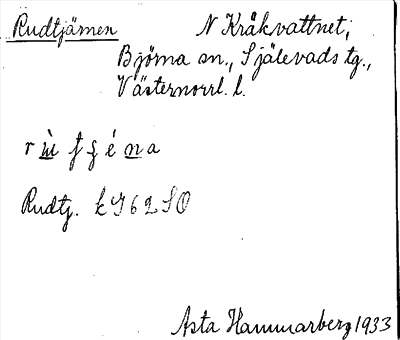 Rudtjärnen N Kråkvattnet,
Björna sn., Själevads tg.,
Västernorrl. l.
Rudtj. k J 6 2 S O
Asta Hammarberg 1933